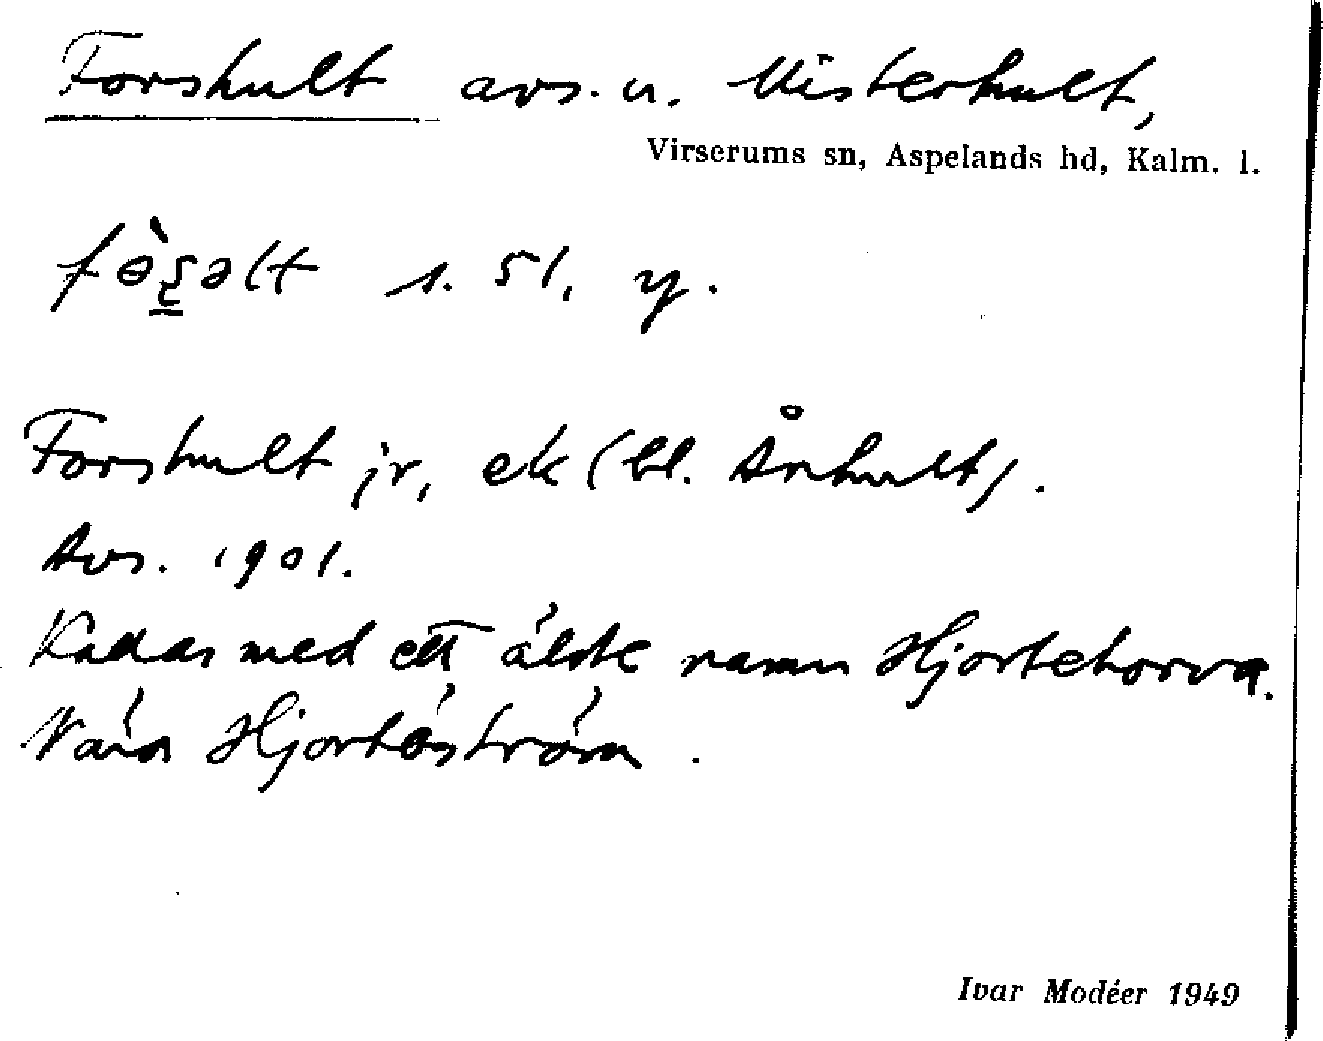 Forshult avs. u. Misterhult,
Virserums sn, Aspelands hd, Kalm. l.
s. 51, y.
Forshult jr, ek (bl. Århult).
Avs. 1901.
Kallas med ett äldre namn Hjortehorva.
Nära Hjortöström.
Ivar Modéer 1949